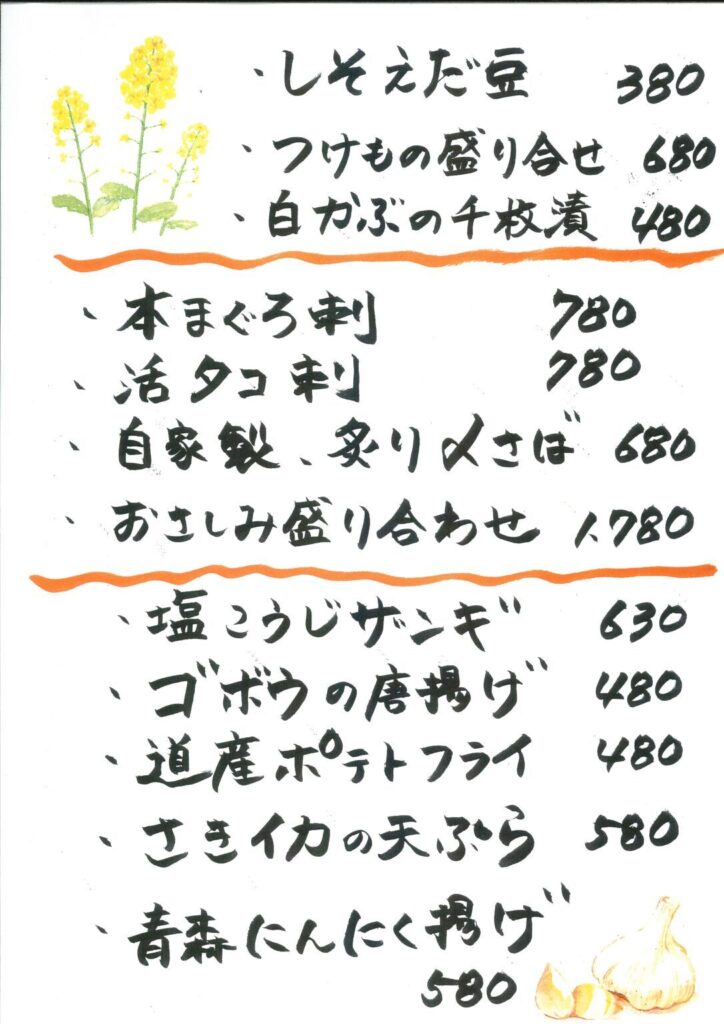 ・しそえだ豆 380
・つけもの盛り合せ 680
・白かぶの千枚漬 480
・本まぐろ刺 780
・活タコ刺 780
・自家製、炙り〆さば 680
・おさしみ盛り合わせ 1,780
・塩こうじザンギ 630
・ゴボウの唐揚げ 480
・道産ポテトフライ 480
・さきイカの天ぷら 580
・青森にんにく揚げ
580